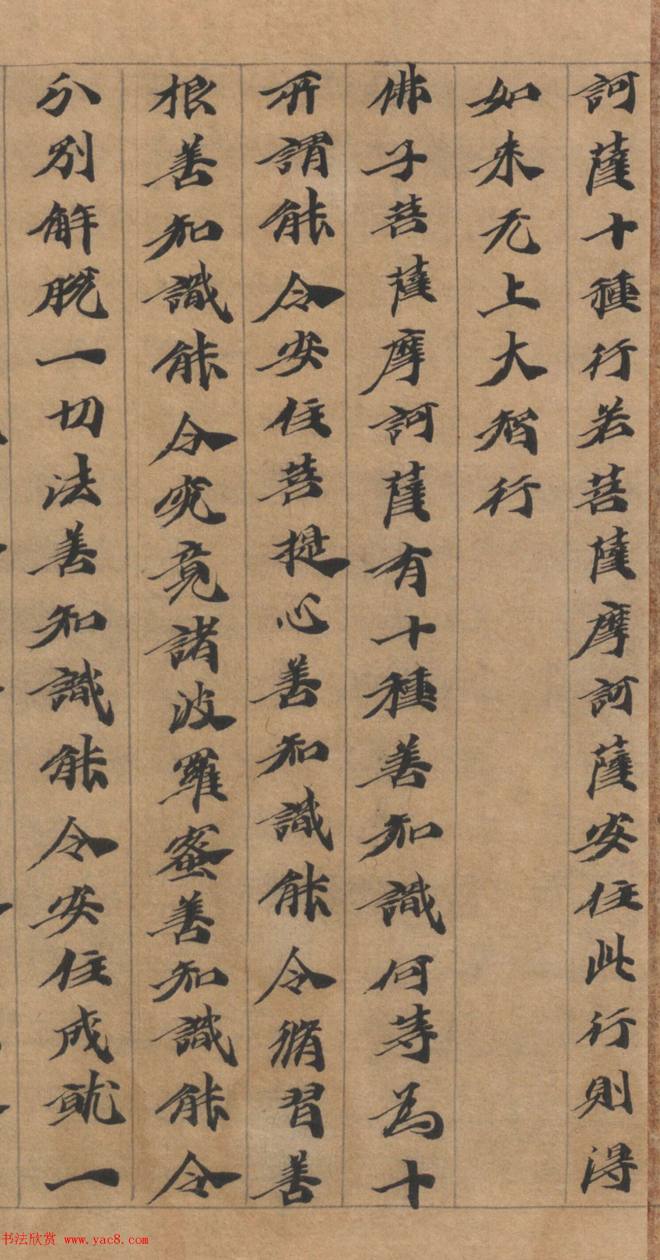 訶薩十種行若菩薩摩訶薩安住此行則得
如来无上大智行
佛子菩薩摩訶薩有十種善知識何等為十
所謂能令安住菩提心善知識能令脩習善
根善知識能令究竟諸波羅蜜善知識能令
分別解脱一切法善知識能令安住成就一
书法欣赏 www.yac8.com